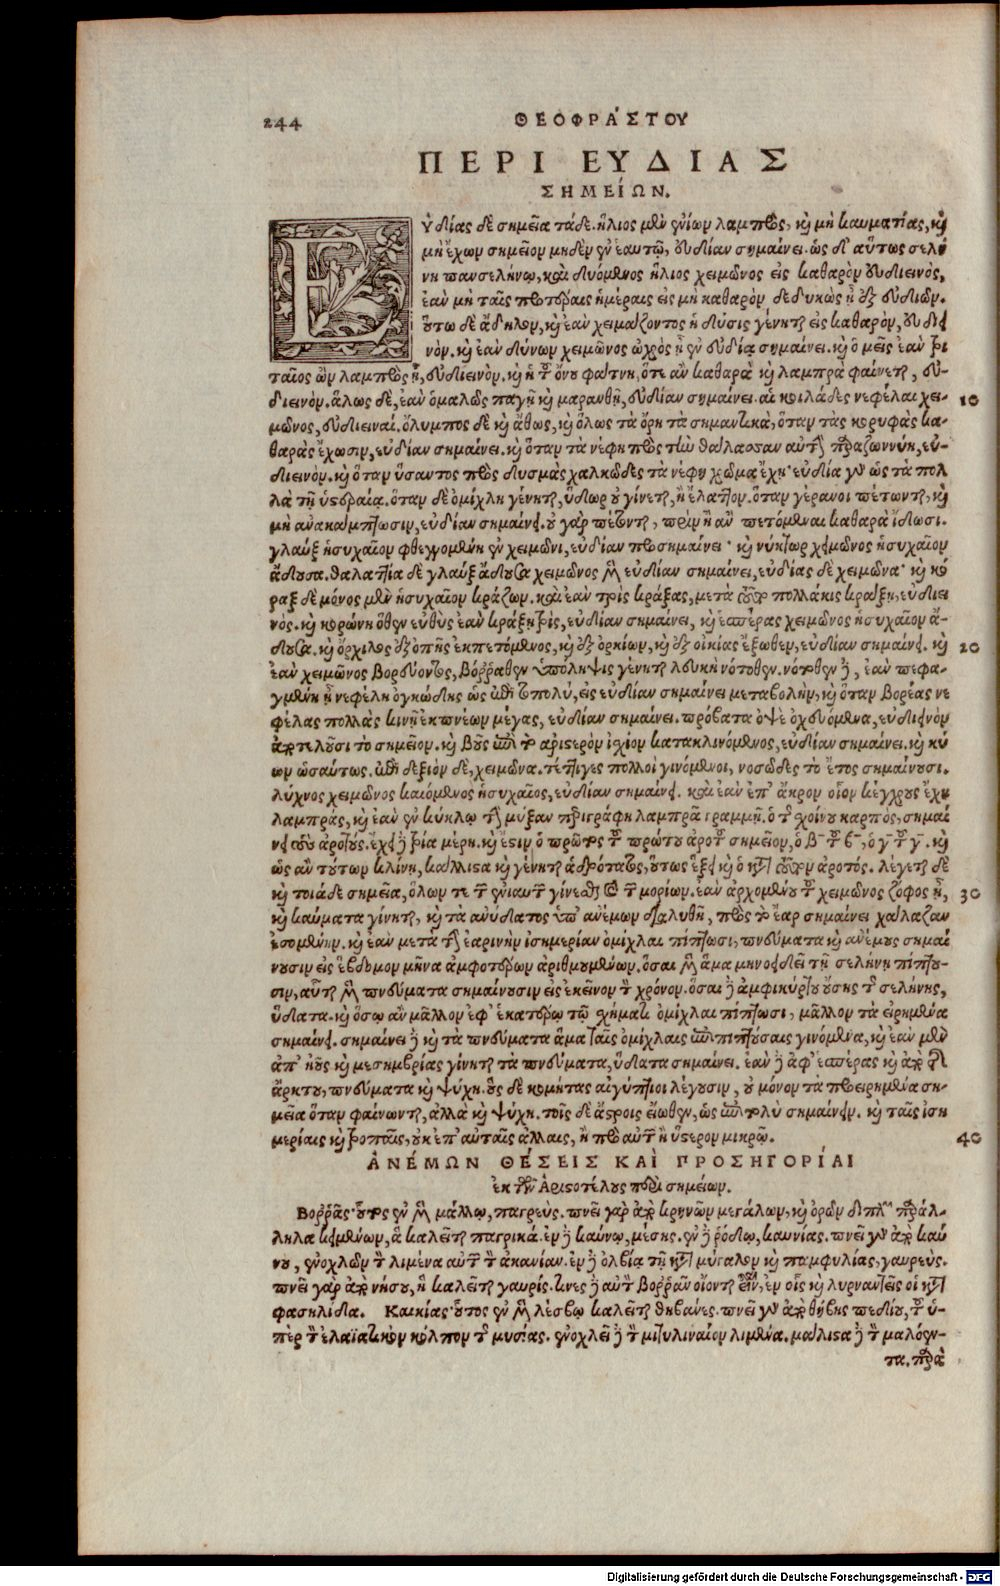 244
ΘΕΟΦΡΆΣΤΟΥ
ΠΕΡΙ ΕΥΔΙΑΣ
ΣΗΜΕΊΩΝ.
Εὐδίας δὲ σημεῖα τάδε. ἥλιος μὲν ἀνίων λαμπρὸς, καὶ μὴ καυματίας, καὶ
μὴ ἔχων σημεῖον μηδὲν ἐν ἑαυτῷ, εὐδίαν σημαίνει. ὡς δ' αὕτως σελή
νη πανσελήνῳ, καὶ δυόμενος ἥλιος χειμῶνος εἰς καθαρὸν εὐδιεινός,
ἐὰν μὴ ταῖς προτέραις ἡμέραις εἰς μὴ καθαρὸν δεδυκὼς ᾖ ἐξ εὐδιῶν.
οὕτω δὲ ἄδηλον, καὶ ἐὰν χειμάζοντος ἡ δύσις γένηται εἰς καθαρὸν, εὐδιει
νόν. καὶ ἐὰν δύνων χειμῶνος ὠχρὸς ᾖ εὐδίαν σημαίνει. καὶ ὁ μεὶς ἐὰν τρι
ταῖος ὢν λαμπρὸς ᾖ, εὐδιεινόν. καὶ ἡ τοῦ ὄνου φάτνη, ὅτε ἂν καθαρὰ καὶ λαμπρὰ φαίνεται, εὐ-
διεινόν. ἅλως δὲ, ἐὰν ὁμαλῶς παγῇ καὶ μαρανθῇ, εὐδίαν σημαίνει. αἱ κοιλάδες νεφέλαι χει-
10
μῶνος, εὐδιειναί. ὄλυμπος δὲ καὶ ἄθως, καὶ ὅλως τὰ ὄρη τὰ σημαντικὰ, ὅταν τὰς κορυφὰς κα-
θαρὰς ἔχωσιν, εὐδίαν σημαίνει. καὶ ὅταν τὰ νέφη πρὸς τὴν θάλασσαν αὐτὴν παραζωννύῃ, εὐ-
διεινόν. καὶ ὅταν ὕσαντος πρὸς δυσμὰς χαλκῶδες τὰ νέφη χρῶμα ἔχῃ. εὐδία γὰρ ὡς τὰ πολ
λὰ τῇ ὑστεραίᾳ. ὅταν δὲ ὁμίχλη γένηται, ὕδωρ οὐ γίνεται, ἢ ἔλαττον. ὅταν γέρανοι πέτωνται, καὶ
μὴ ἀνακάμπτωσιν, εὐδίαν σημαίνει. οὐ γὰρ πέτονται, πρὶν ἢ ἂν πετόμεναι καθαρὰ ἴδωσι.
γλαὺξ ἡσυχαῖον φθεγγομένη ἐν χειμῶνι, εὐδίαν προσημαίνει. καὶ νύκτωρ χειμῶνος ἡσυχαῖον
ᾄδουσα. θαλαττία δὲ γλαὺξ ᾄδουσα χειμῶνος μὲν εὐδίαν σημαίνει, εὐδίας δὲ χειμῶνα. καὶ κό
ραξ δὲ μόνος μὲν ἡσυχαῖον κράζων. καὶ ἐὰν τρὶς κράξας, μετὰ τοῦτον πολλάκις κράξῃ, εὐδιει
νός. καὶ κορώνη ὄθεν εὐθὺς ἐὰν κράξῃ τρὶς, εὐδίαν σημαίνει, καὶ ἑσπέρας χειμῶνος ἡσυχαῖον ᾄ-
δουσα. καὶ ὄρχιλος ἐξ ὀπῆς ἐκπετόμενος, καὶ ἐξ ὁρκίων, καὶ ἐξ οἰκίας ἔξωθεν, εὐδίαν σημαίνει. καὶ
20
ἐὰν χειμῶνος βορεύοντος, βόρραθεν ὑπόληψις γένηται λευκὴ νότοθεν. νότοθεν δὲ, ἐὰν πεφα-
γμένη ᾖ νεφέλη ὀγκώδης ὡς ἐπὶ τὸ πολύ, εἰς εὐδίαν σημαίνει μεταβολήν, καὶ ὅταν βορέας νε
φέλας πολλὰς κινῇ ἐκπνέων μέγας, εὐδίαν σημαίνει. πρόβατα ὀψὲ ὀχευόμενα, εὐδιεινὸν
ἀποτελοῦσι τὸ σημεῖον. καὶ βοῦς ἐπὶ τὸ ἀριστερὸν ἰσχίον κατακλινόμενος, εὐδίαν σημαίνει. καὶ κύ
ων ὡσαύτως. ἐπὶ δεξιὸν δὲ, χειμῶνα. τέττιγες πολλοὶ γινόμενοι, νοσῶδες τὸ ἔτος σημαίνουσι.
λύχνος χειμῶνος καιόμενος ἡσυχαῖος, εὐδίαν σημαίνει. καὶ ἐὰν ἐπ' ἄκρον οἷον κέγχρους ἔχῃ
λαμπράς, καὶ ἐὰν ἐν κύκλῳ τὴν μύξαν περιγράφῃ λαμπρᾷ γραμμῇ. ὁ τοῦ σχοίνου καρπός, σημαί
νει τοὺς ἀρότους. ἔχει δὲ τρία μέρη. καὶ ἔστιν ὁ πρῶτος τοῦ πρώτου ἀρότου σημεῖον, ὁ β τοῦ β, ὁ γ τοῦ γ. καὶ
ὡς ἂν τούτων κλίνῃ, κάλλιστα καὶ γένηται ἁδρότατος, οὕτως ἕξει καὶ ὁ κατὰ τοῦτον ἄροτός. λέγεται δὲ
καὶ τοιάδε σημεῖα, ὅλων τε τῶν ἐνιαυτῶν γίνεσθαι καὶ τῶν μορίων. ἐὰν ἀρχομένου τοῦ χειμῶνος ζόφος ᾖ,
30
καὶ καύματα γίνηται, καὶ τὰ ἀνύδατος ὑπ' ἀνέμων διαλυθῇ, πρὸς τὸ ἔαρ σημαίνει χάλαζαν
ἐσομένην. καὶ ἐὰν μετὰ τὴν ἐαρινὴν ἰσημερίαν ὁμίχλαι πίπτωσι, πνεύματα καὶ ἀνέμους σημαί
νουσιν εἰς ἕβδομον μῆνα ἀμφοτέρων ἀριθμουμένων. ὅσαι μὲν ἅμα μηνοειδεῖ τῇ σελήνῃ πίπτου-
σιν, αὗται μὲν πνεύματα σημαίνουσιν εἰς ἐκεῖνον τὸν χρόνον. ὅσαι δὲ ἀμφικύρτου οὔσης τῆς σελήνης,
ὕδατα. καὶ ὅσῳ ἂν μᾶλλον ἐφ' ἑκατέρῳ τῷ σχήματι ὁμίχλαι πίπτωσι, μᾶλλον τὰ εἰρημένα
σημαίνει. σημαίνει δὲ καὶ τὰ πνεύματα ἅμα ταῖς ὁμίχλαις ἐπιπιπτούσαις γινόμενα, καὶ ἐὰν μὲν
ἀπ' ἠοῦς καὶ μεσημβρίας γίνηται τὰ πνεύματα, ὕδατα σημαίνει. ἐὰν δὲ ἀφ' ἑσπέρας καὶ ἀπὸ τῆς
ἄρκτου, πνεύματα καὶ ψύχη. οὓς δὲ κομήτας αἰγύπτιοι λέγουσιν, οὐ μόνον τὰ προειρημένα ση-
μεῖα ὅταν φαίνωνται, ἀλλὰ καὶ ψύχη. τοῖς δὲ ἄστροις εἴωθεν, ὡς ἐπὶ τὸ πολὺ σημαίνειν. καὶ ταῖς ἰση
μερίαις καὶ τροπαῖς, οὐκ ἐπ' αὐταῖς ἀλλαις, ἢ πρὸ αὐτῶν ἢ ὕστερον μικρῷ.
40
ἈΝΈΜΩΝ ΘΈΣΕΙΣ ΚΑῚ ΠΡΟΣΗΓΟΡΊΑΙ
ἐκ τῶν Ἀριστοτέλους περὶ σημείων.
Βορρᾶς. οὗτος ἐν μὲν μάλλῳ, παγρεύς. πνεῖ γὰρ ἀπὸ κρημνῶν μεγάλων, καὶ ὀρῶν διπλῆ παράλ-
ληλα κειμένων, ἃ καλεῖται παγρικά. ἐν δὲ καύνῳ, μέσης. ἐν δὲ ῥόδῳ, καυνίας. πνεῖ γὰρ ἀπὸ καύ
νου, ἐνοχλῶν τὸν λιμένα αὐτῶν τὸν ἀκανίαν. ἐν δὲ ὀλβίᾳ τῇ κατὰ μύγαλον καὶ παμφυλίας, γαυρεύς.
πνεῖ γὰρ ἀπὸ νήσου, ἣ καλεῖται γαυρίς. τινὲς δὲ αὐτὸν βορρᾶν οἴονται εἶναι, ἐν οἷς καὶ λυρναντιεῖς οἱ κατὰ
φασηλίδα. Καικίας. οὗτος ἐν μὲν λέσβῳ καλεῖται θηβάνες. πνεῖ γὰρ ἀπὸ θήβης πεδίου, τοῦ ὑ-
πὲρ τὸν ἐλαϊατικὸν κόλπον τῆς μυσίας. ἐνοχλεῖ δὲ τὸν μιτυληναίων λιμένα. μάλιστα δὲ τὸν μαλόεν-
τα. παρὰ
Digitalisierung gefördert durch die Deutsche Forschungsgemeinschaft - DFG